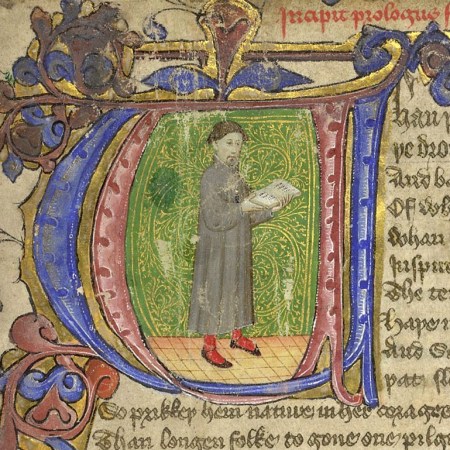 Incipit prologus
han
þe dro
And ba
Of wh
Whan
Inspir
The te
haþe
And
þat sl
So prikkeþ hem nature in her corage
Than longen folke to gone one pilg